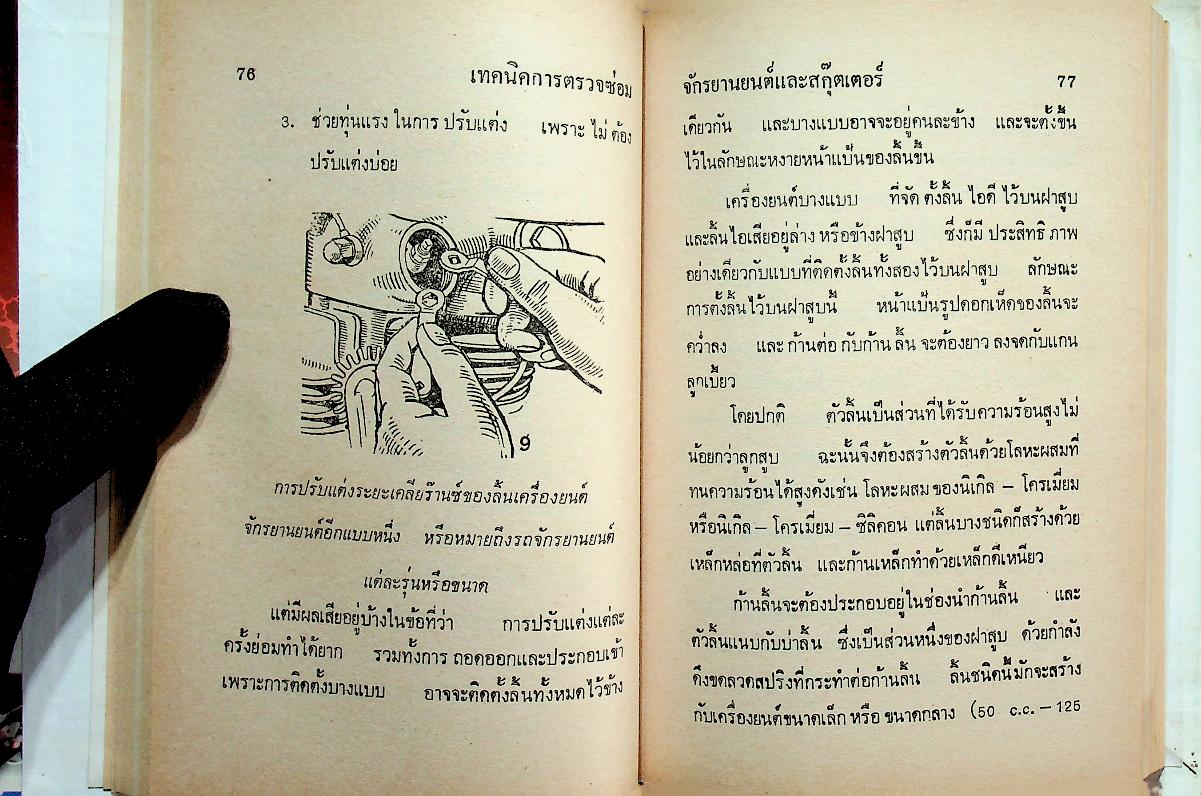 76
เทคนิคการตรวจซ่อม
3. ช่วยทุ่นแรง ในการ ปรับแต่ง เพราะ ไม่ ต้อง
ปรับแต่งบ่อย
9
การปรับแต่งระยะเคลียร๊านซ์ของลิ้นเครื่องยนต์
จักรยานยนต์อีกแบบหนึ่ง หรือหมายถึงรถจักรยานยนต์
แต่ละรุ่นหรือขนาด
แต่มีผลเสียอยู่บ้างในข้อที่ว่า การปรับแต่งแต่ละ
ครั้งย่อมทำได้ยาก รวมทั้งการ ถอดออกและประกอบเข้า
เพราะการติดตั้งบางแบบ อาจจะติดตั้งลิ้นทั้งหมดไว้ข้าง
จักรยานยนต์และสกู๊ตเตอร์
77
เดียวกัน และบางแบบอาจจะอยู่คนละข้าง และจะตั้งขึ้น
ไว้ในลักษณะหงายหน้าแป้นของลิ้นขึ้น
เครื่องยนต์บางแบบ ที่จัด ตั้งลิ้น ไอดี ไว้บนฝาสูบ
และลิ้นไอเสียอยู่ล่าง หรือข้างฝาสูบ ซึ่งก็มี ประสิทธิ ภาพ
อย่างเดียวกับแบบที่ติดตั้งลิ้นทั้งสองไว้บนฝาสูบ ลักษณะ
การตั้งลิ้นไว้บนฝาสูบนี้ หน้าแป้นรูปดอกเห็ดของลิ้นจะ
คว่ำลง และ ก้านต่อ กับก้าน ลิ้น จะต้องยาว ลงจดกับแกน
ลูกเบี้ยว
โดยปกติ ตัวลิ้นเป็นส่วนที่ได้รับความร้อนสูงไม่
น้อยกว่าลูกสูบ ฉะนั้นจึงต้องสร้างตัวลิ้นด้วยโลหะผสมที่
ทนความร้อนได้สูงดังเช่น โลหะผสม ของนิเกิล – โครเมี่ยม
หรือนิเกิล – โครเมี่ยม – ซิลิคอน แต่ลิ้นบางชนิดก็สร้างด้วย
เหล็กหล่อที่ตัวลิ้น และก้านเหล็กทำด้วยเหล็กดีเหนียว
ก้านลิ้นจะต้องประกอบอยู่ในช่องนำก้านลิ้น และ
ตัวลิ้นแนบกับบ่าลิ้น ซึ่งเป็นส่วนหนึ่งของฝาสูบ ด้วยกำลัง
ดึงขดลวดสปริงที่กระทำต่อก้านลิ้น ลิ้นชนิดนี้มักจะสร้าง
กับเครื่องยนต์ขนาดเล็ก หรือ ขนาดกลาง (50 c.c. – 125